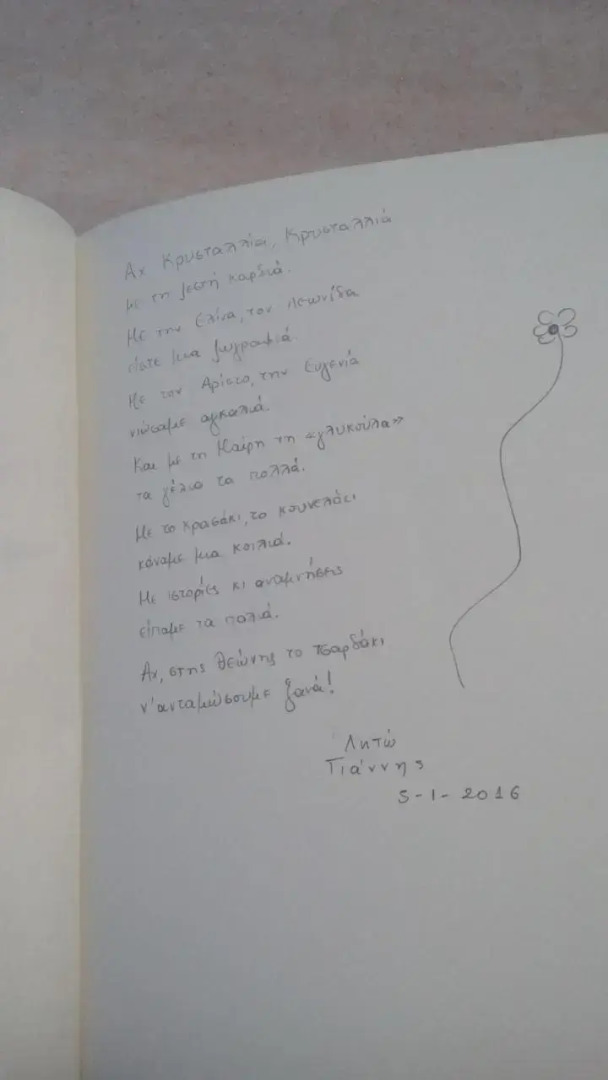 Αχ Κρυσταλλία, Κρυσταλλιά
με τη ζεστή καρδιά.
Με την Ελίνα, τον Λεωνίδα
είστε μια ζωγραφιά.
Με τον Αρίστο, την Ευγενία
νιώσαμε αγκαλιά.
Και με τη Μαίρη τη «γλυκούλα»
τα γέλια τα πολλά.
Με το κρασάκι, το κουνελάκι
κάναμε μια κοιλιά.
Με ιστορίες κι αναμνήσεις
είπαμε τα παλιά.
Αχ, στης Θεώνης το τσαρδάκι
ν'ανταμώσουμε ξανά!
Λητώ
Γιάννης
5-1-2016